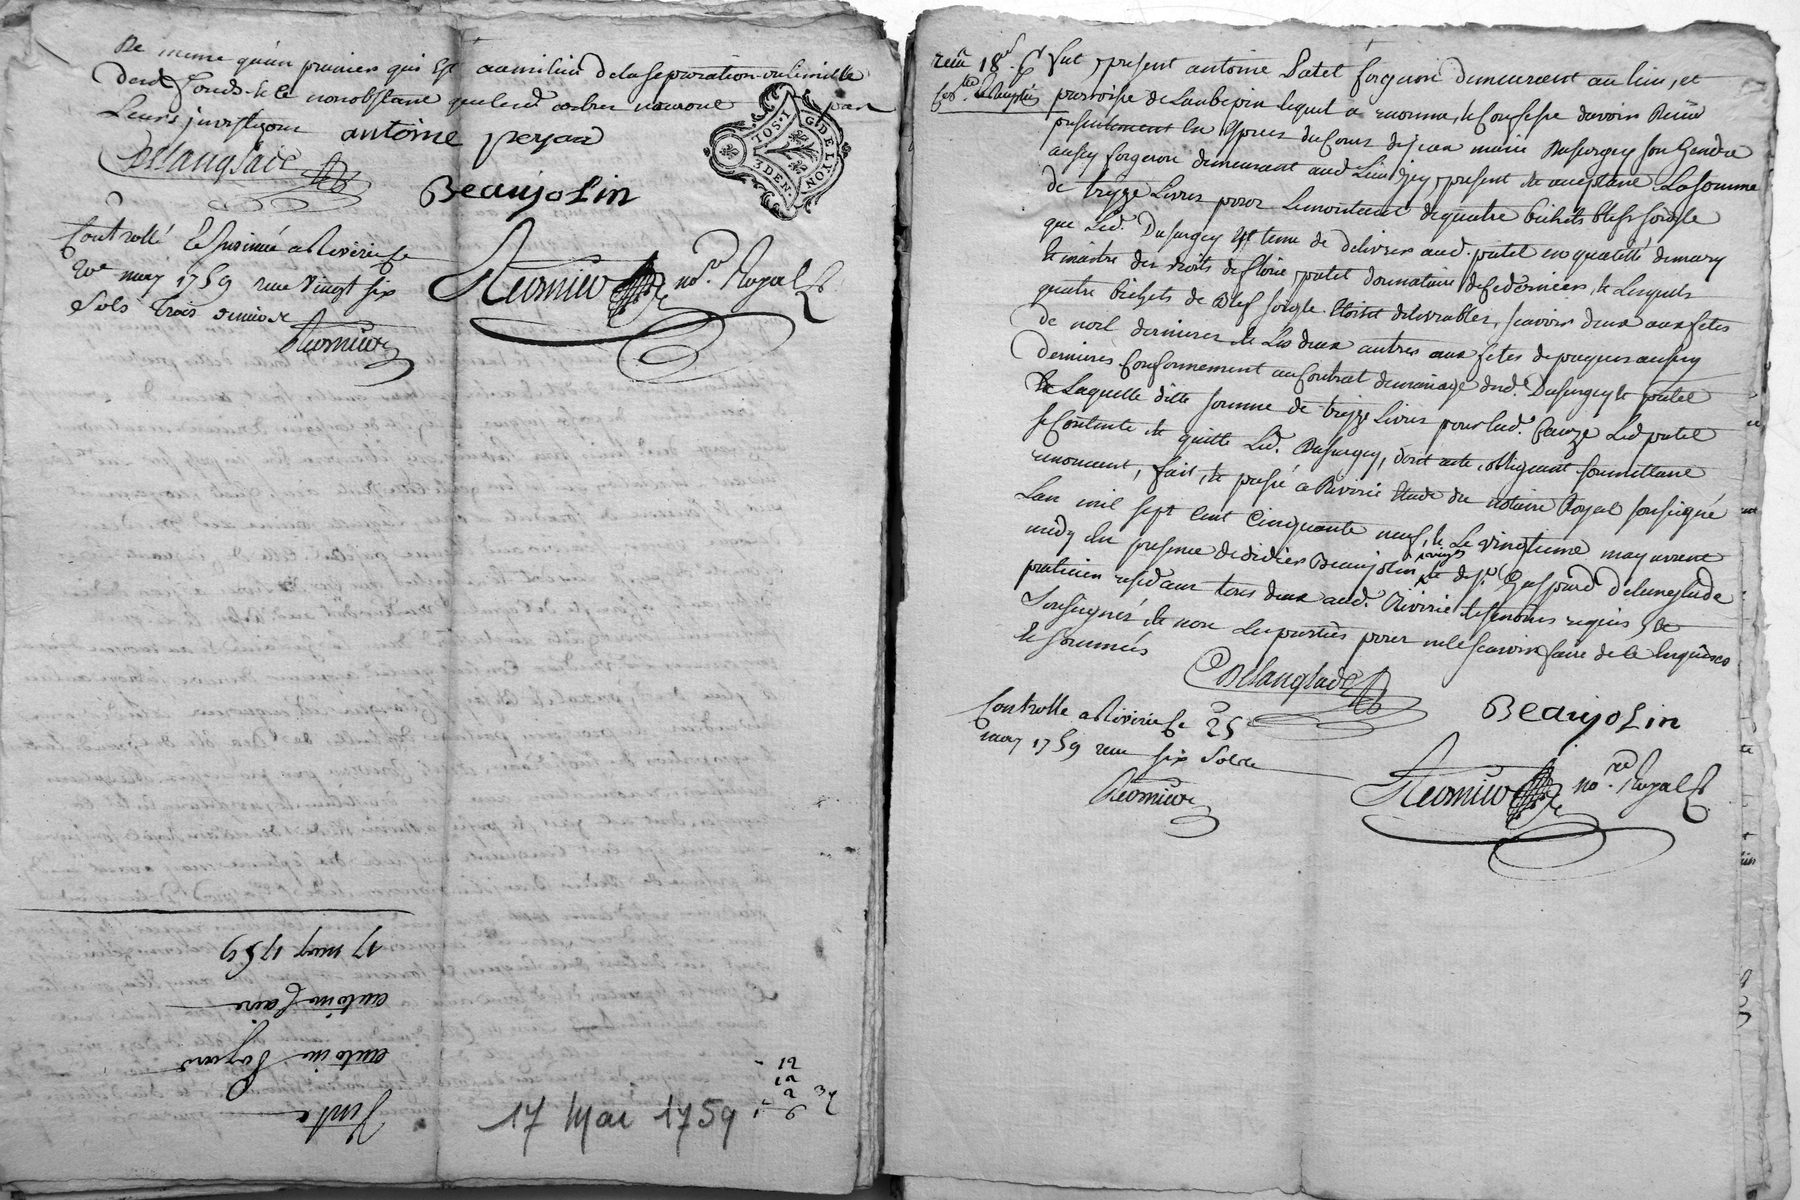 De meme qu'un premier qui est au milieu de la separation
desd. fonds & ce nonobstant que led. arbre par
Leurs
antoine peyard
GDELYON
3DEN.
Delanglade
Beaujolin
Controllé & Insinué a Riverie le
20e may 1759 receu vingt six
sols trois deniers
Reomieu
Reomieu nore. Royal
17 may 1759
antoine
antoine
Vente
17 Mai 1759
12
12
2
6
receu 18s. 6d
Fut present antoine Patel forgeron demeurant au lieu, et
parroisse de Laubepin lequel a reconnu, & Confessé davoir Receu
presentement en Especes du Cours de jean marie Dusurgey son Gendre
aussy forgeron demeurant aud Lieu jcy present & acceptant La somme
de treyze Livres pour Le montant de quatre bichets bled soigle
que Led. Dusurgey est tenu de delivrer aud. patel en qualitté de mary
& maitre des droits de patel donnataire de ce dernier, & Lesquels
quatre bichets de Bled soigle Etoient delivrables, scavoir deux aux fetes
de noel dernieres & Les deux autres aux fetes de paques aussy
dernieres Conformement au Contrat de mariage dud. Dusurgey & patel
de Laquelle ditte somme de treyze Livres pour lad. Cauze Led patel
se Contente & quitte Led. Dusurgey, dont acte, obligeant soumettant
renoncant, fait, & passé a Riverie Etude du notaire Royal soussigné
Lan mil sept cent Cinquante neuf, & Le vingtieme may avant
midy En presence de didier Beaujolin & de sr. Gaspard Delanglade
praticien residant tous deux aud. Riverie tesmoins requis, &
Soussignés & non Les parties pour ne le scavoir faire de ce Enquises
& sommés
Delanglade
Beaujolin
Controllé a Riverie le 25
may 1759 receu six sols
Reomieu
Reomieu nore. Royal